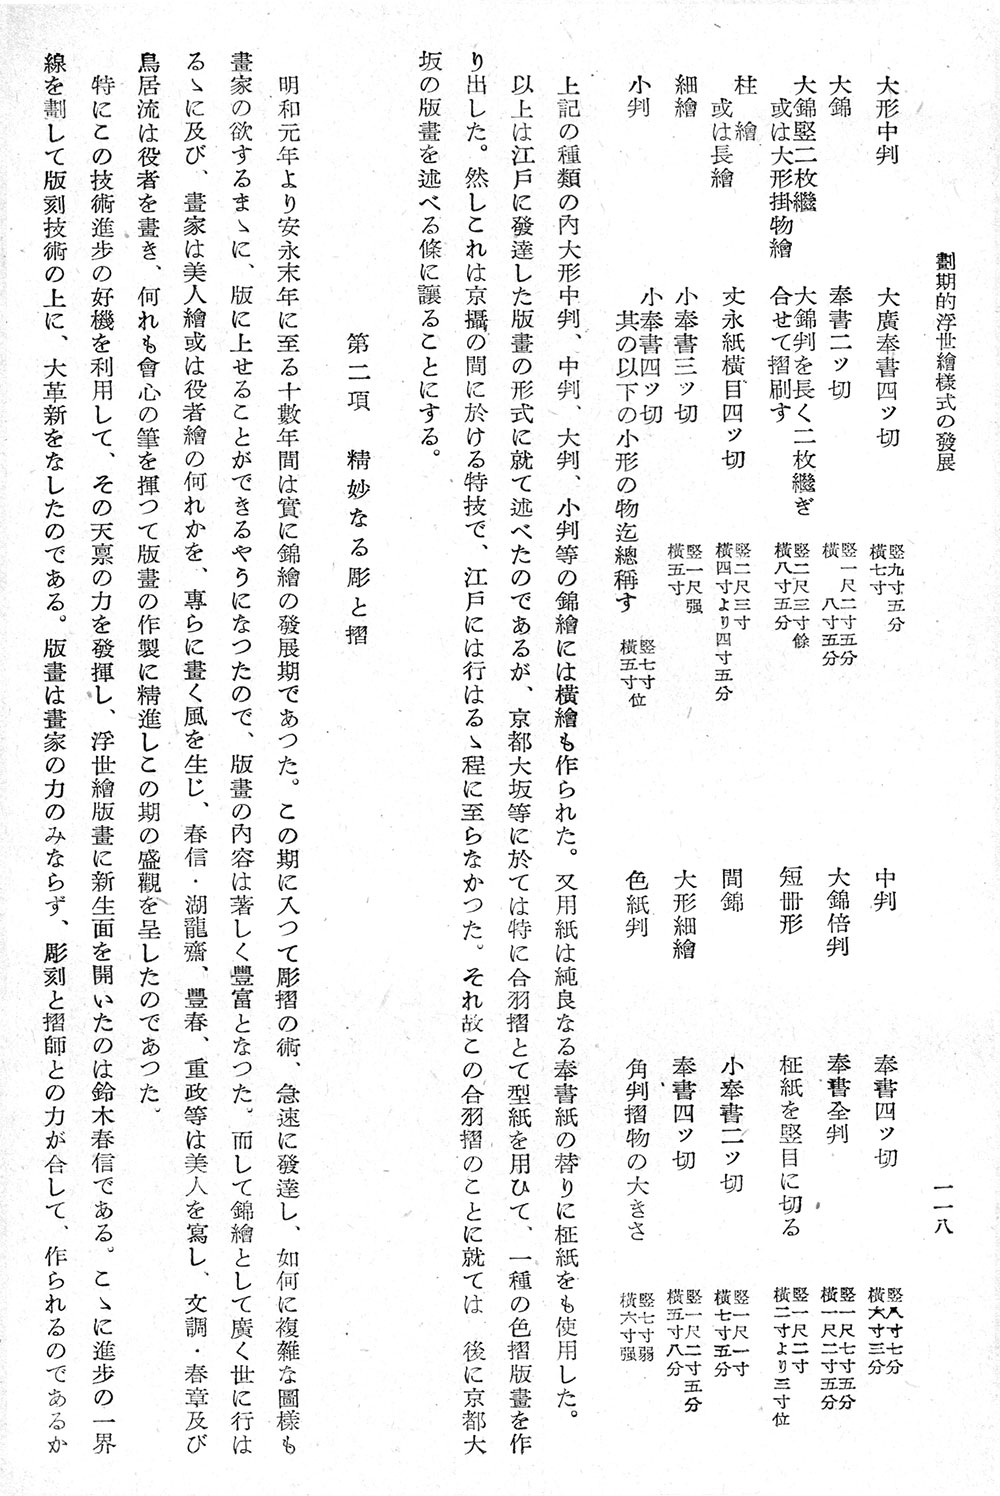 劃期的浮世繪樣式の發展
一一八
大形中判　大廣奉書四ッ切　竪九寸五分　橫七寸
中判　奉書四ッ切　竪八寸七分　橫六寸三分
大錦　奉書二ッ切　竪一尺二寸五分　橫八寸五分
大錦倍判　奉書全判　竪一尺七寸五分　橫一尺二寸五分
大錦竪二枚繼　或は大形掛物繪　大錦判を長く二枚繼ぎ合せて摺刷す　竪二尺三寸餘　橫八寸五分
短冊形　柾紙を竪目に切る　竪一尺二寸　橫二寸より三寸位
柱繪　或は長繪　丈永紙橫目四ッ切　竪二尺三寸　橫四寸より四寸五分
間錦　小奉書二ッ切　竪一尺一寸　橫七寸五分
細繪　小奉書三ッ切　竪一尺强　橫五寸
大形細繪　奉書四ッ切　竪一尺二寸五分　橫五寸八分
小判　小奉書四ッ切　其の以下の小形の物迄總稱す　竪七寸　橫五寸位
色紙判　角判摺物の大きさ　竪七寸弱　橫六寸强
上記の種類の內大形中判、中判、大判、小判等の錦繪には橫繪も作られた。又用紙は純良なる奉書紙の替りに柾紙をも使用した。
以上は江戶に發達した版畫の形式に就て述べたのであるが、京都大坂等に於ては特に合羽摺とて型紙を用ひて、一種の色摺版畫を作
り出した。然しこれは京攝の間に於ける特技で、江戶には行はるゝ程に至らなかつた。それ故この合羽摺のことに就ては　後に京都大
坂の版畫を述べる條に讓ることにする。
第二項　精妙なる彫と摺
明和元年より安永末年に至る十數年間は實に錦繪の發展期であつた。この期に入つて彫摺の術、急速に發達し、如何に複雜な圖樣も
畫家の欲するまゝに、版に上せることができるやうになつたので、版畫の內容は著しく豐富となつた。而して錦繪として廣く世に行は
るゝに及び、畫家は美人繪或は役者繪の何れかを、專らに畫く風を生じ、春信・湖龍齋、豐春、重政等は美人を寫し、文調・春章及び
鳥居流は役者を畫き、何れも會心の筆を揮つて版畫の作製に精進しこの期の盛觀を呈したのであつた。
特にこの技術進步の好機を利用して、その天禀の力を發揮し、浮世繪版畫に新生面を開いたのは鈴木春信である。こゝに進步の一界
線を劃して版刻技術の上に、大革新をなしたのである。版畫は畫家の力のみならず、彫刻と摺師との力が合して、作られるのであるか